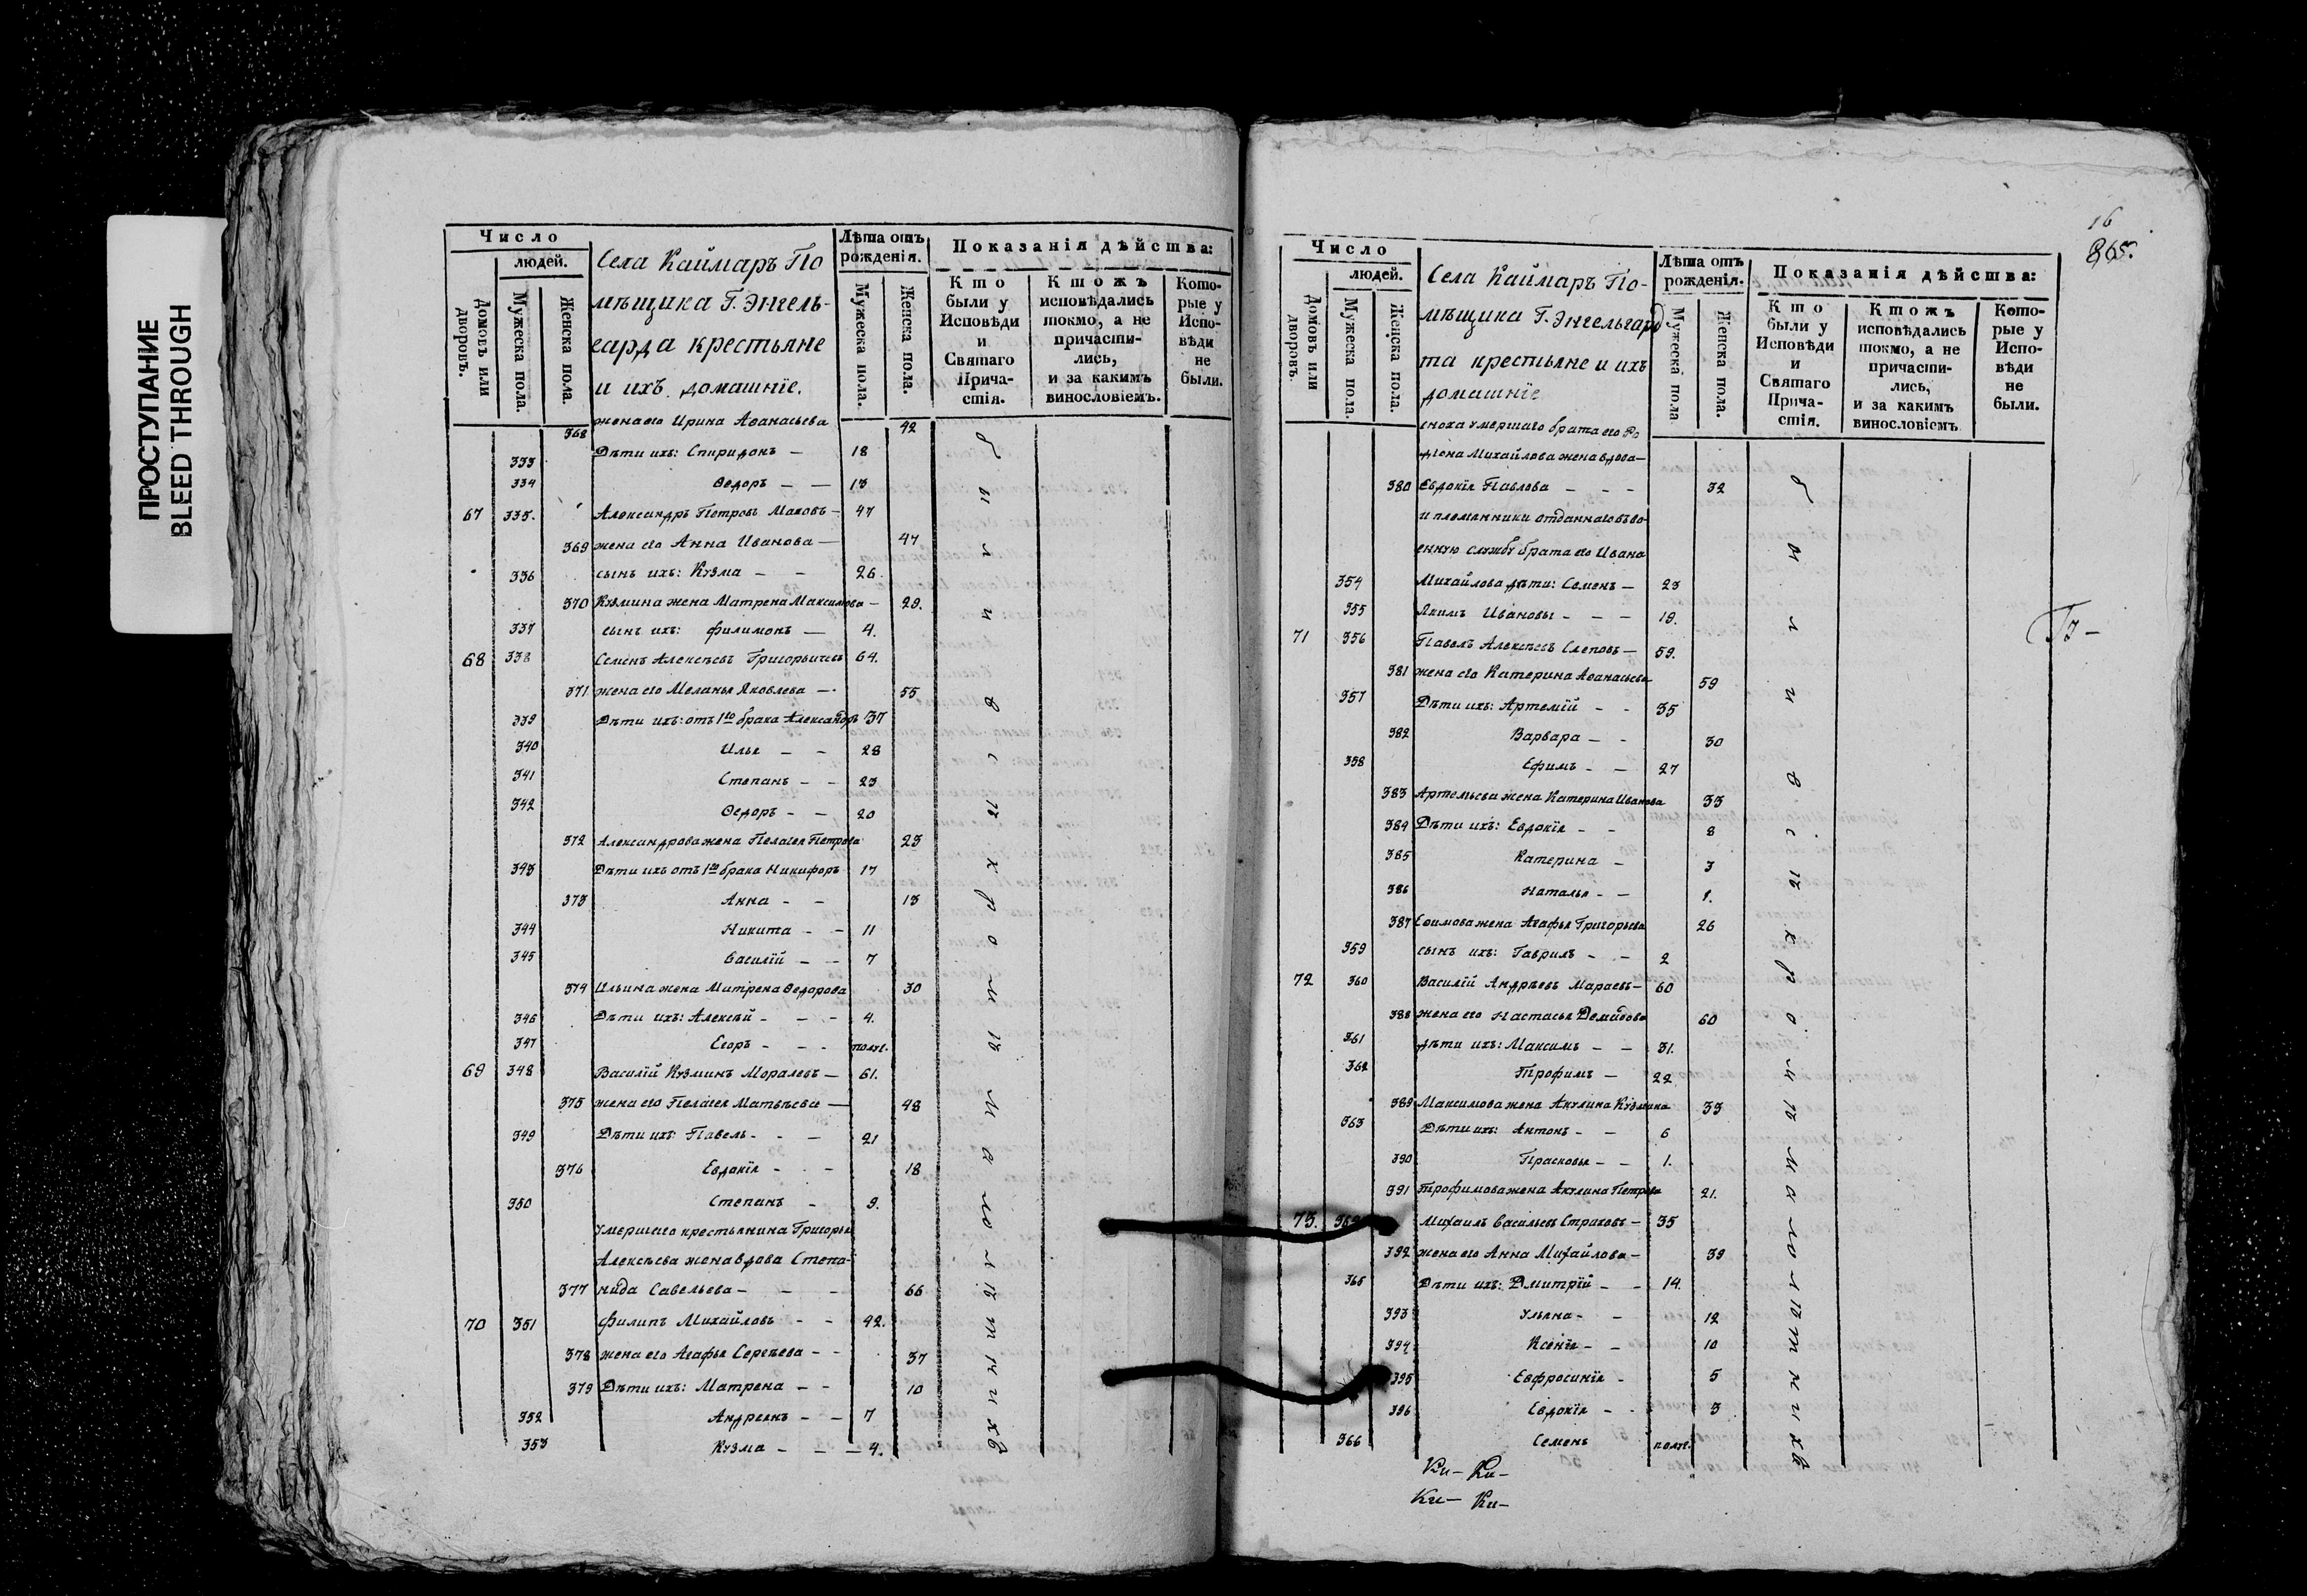 ПРОСТУПАНИЕ
BLEED THROUGH
Число
людей.
Домовъ или дворовъ.
Мужеска пола.
Женска пола.
Села Каймаръ По
мѣщика Г. Энгель-
гарда крестьяне
и ихъ домашніе.
Лѣта отъ рожденія.
Мужеска пола.
Женска пола.
Показанія дѣйства:
Кто были у Исповѣди и Святаго Причастія.
Ктожъ исповѣдались токмо, а не причастились, и за какимъ винословіемъ.
Которые у Исповѣди не были.
368 жена его Ирина Аѳанасьева 42
333 Дѣти ихъ: Спиридонъ — 18
334 Ѳедоръ — — 13
67 335. Александръ Петровъ Маховъ — 47
369 жена его Анна Иванова — 47
336 сынъ ихъ: Кузма — — 26.
370 Кузмина жена Матрена Максимова — 29.
337 сынъ ихъ: Филимонъ — 4.
68 338 Семенъ Алексѣевъ Григорьичевъ 64.
371 жена его Меланья Яковлева — 55
339 Дѣти ихъ: отъ 1го брака Александръ 37
340 Илья — — 28
341 Степанъ — — 23
342 Ѳедоръ — — 20
372 Александрова жена Пелагея Петрова 23
343 Дѣти ихъ отъ 1го брака Никифоръ 17
373 Анна — — 13
344 Никита — — 11
345 Василій — — 7
374 Ильина жена Матрена Ѳедорова 30
346 Дѣти ихъ: Алексѣй — — — 4.
347 Егоръ — — — полг.
69 348 Василій Кузминъ Моралевъ — 61.
375 жена его Пелагея Матвѣева — 48
349 Дѣти ихъ: Павелъ — — — 21
376 Евдокія — — 18
350 Степанъ — 9.
Умершаго крестьянина Григорья
Алексѣева жена вдова Степа-
377 нида Савельева — — — 66
70 351 Филипъ Михайловъ — — 42.
378 жена его Агафья Сергѣева — — 37
379 Дѣти ихъ: Матрена — — 10
352 Андреянъ — — 7
353 Кузма — — — 4.
были въ с ѣ к р о м ѣ малолѣтнихъ
16
865.
Число
людей.
Домовъ или дворовъ.
Мужеска пола.
Женска пола.
Села Каймаръ По-
мѣщика Г. Энгельгард
та крестьяне и ихъ
домашніе
Лѣта отъ рожденія.
Мужеска пола
Женска пола.
Показанія дѣйства:
Кто были у Исповѣди и Святаго Причастія.
Ктожъ исповѣдались токмо, а не причастились, и за какимъ винословіемъ
Которые у Исповѣди не были.
сноха умершаго брата его Ро
діона Михайлова жена вдова —
380 Евдокія Павлова — — — 32
и племянники отданнаго въ во-
енную службу брата его Ивана
354 Михайлова дѣти: Семенъ — 23
355 Якимъ Ивановы — — — 19.
71 356 Павелъ Алексѣевъ Слеповъ — 59.
381 жена его Катерина Аѳанасьева 59
357 Дѣти ихъ: Артемій — — 35
382 Варвара — — 30
358 Ефимъ — — 27
383 Артемьева жена Катерина Иванова 33
384 Дѣти ихъ: Евдокія — — 8
385 Катерина — 3
386 Наталья — — 1.
387 Ефимова жена Агафья Григорьева 26
359 сынъ ихъ: Гаврилъ — — 2
72 360 Василій Андрѣевъ Мараевъ — 60
388 жена его Настасья Демидова 60
361 дѣти ихъ: Максимъ — — 31.
362 Трофимъ — 22
389 Максимова жена Акулина Кузмина 33
363 Дѣти ихъ: Антонъ — — 6
390 Прасковья — — 1.
391 Трофимова жена Акулина Петрова 21.
73. Михаилъ Васильевъ Страховъ — 35
392 жена его Анна Михайлова — 39
365 Дѣти ихъ: Дмитрій — — 14.
393 Ульяна — — 12
394 Ксенія — — 10
395 Евфросинія — 5
396 Евдокія — — 3
366 Семенъ полг.
были въ с ѣ к р о м ѣ малолѣтнихъ
Ки— Ки—
Ки— Ки—